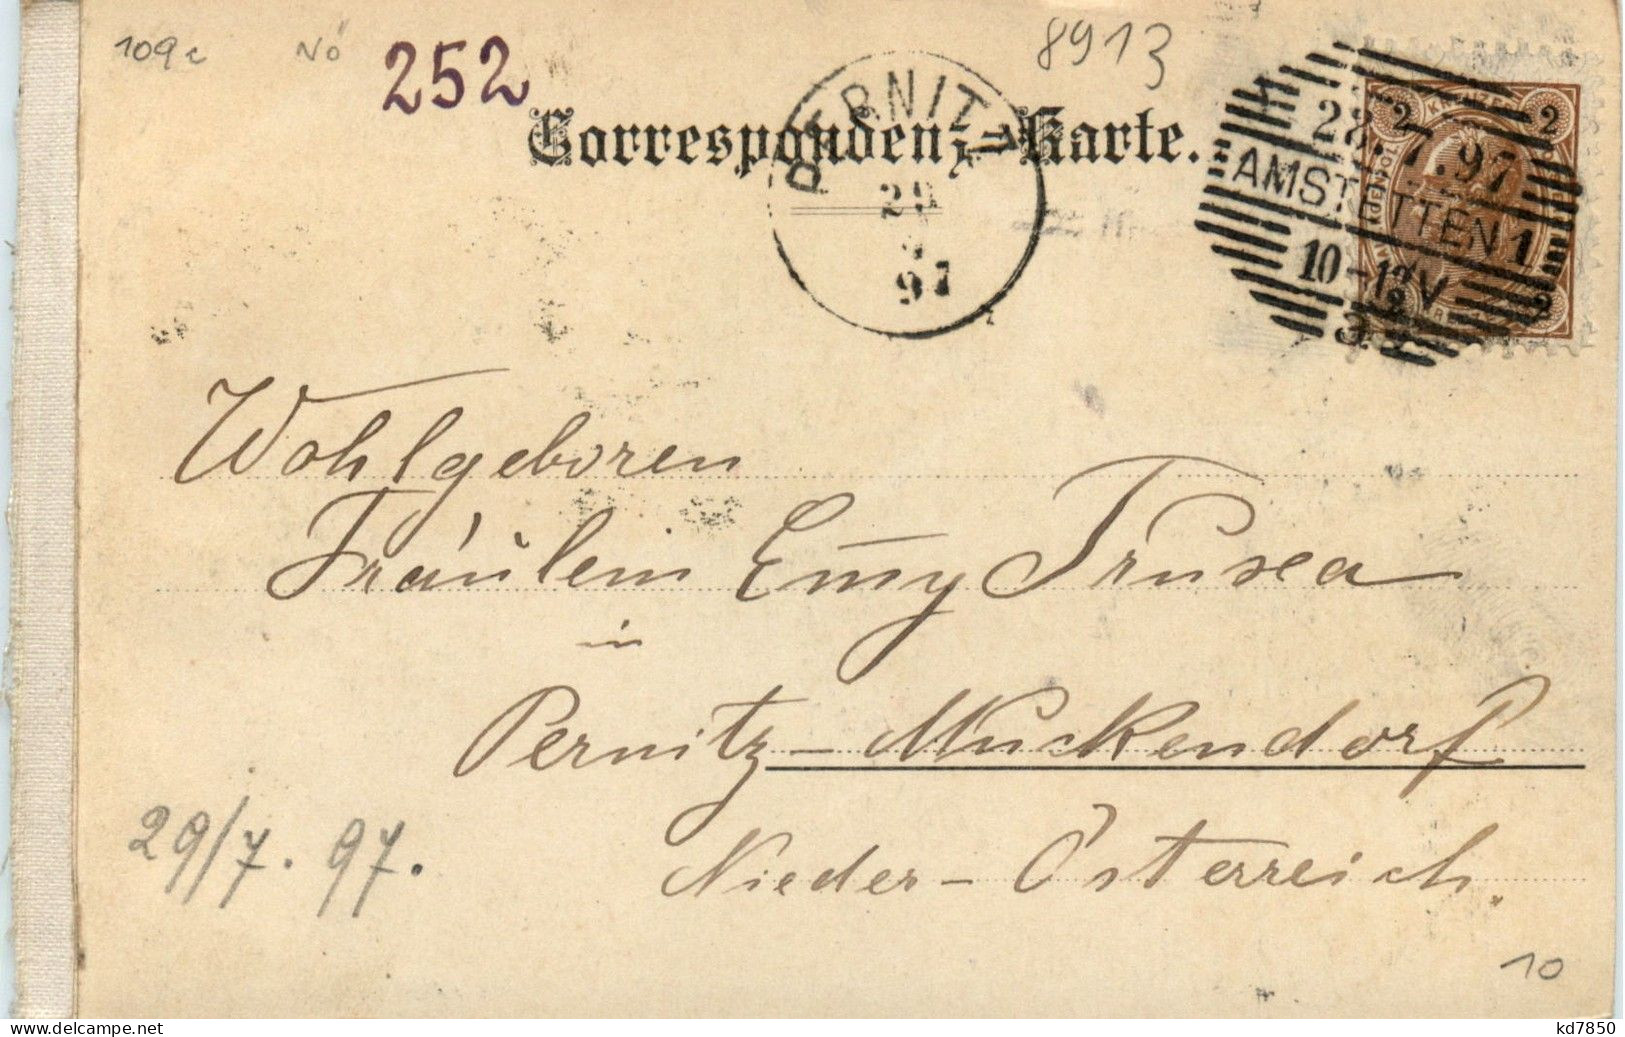 109c NÖ 252 8913
Correspondenz-Karte.
PERNITZ
29
7
97
28.7.97
AMSTETTEN 1
10-12V
3
2 KREUZER 2
2
Wohlgeboren
Fräulein Emy Trnsea
in
Pernitz-Muckendorf
Nieder-Österreich.
29/7. 97.
10
kd7850